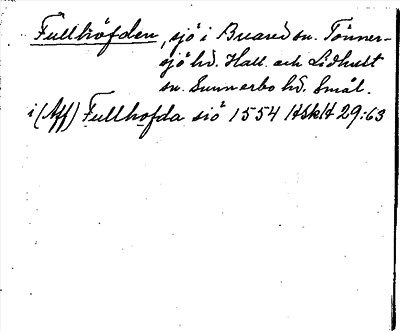 Fullhöfden, sjö i Breared sn. Tönner-
sjö hd. Hall. och Lidhult
sn. Sunnerbo hd. Smål.
i (Aff) Fullhofda siö 1554 HSkH 29:63